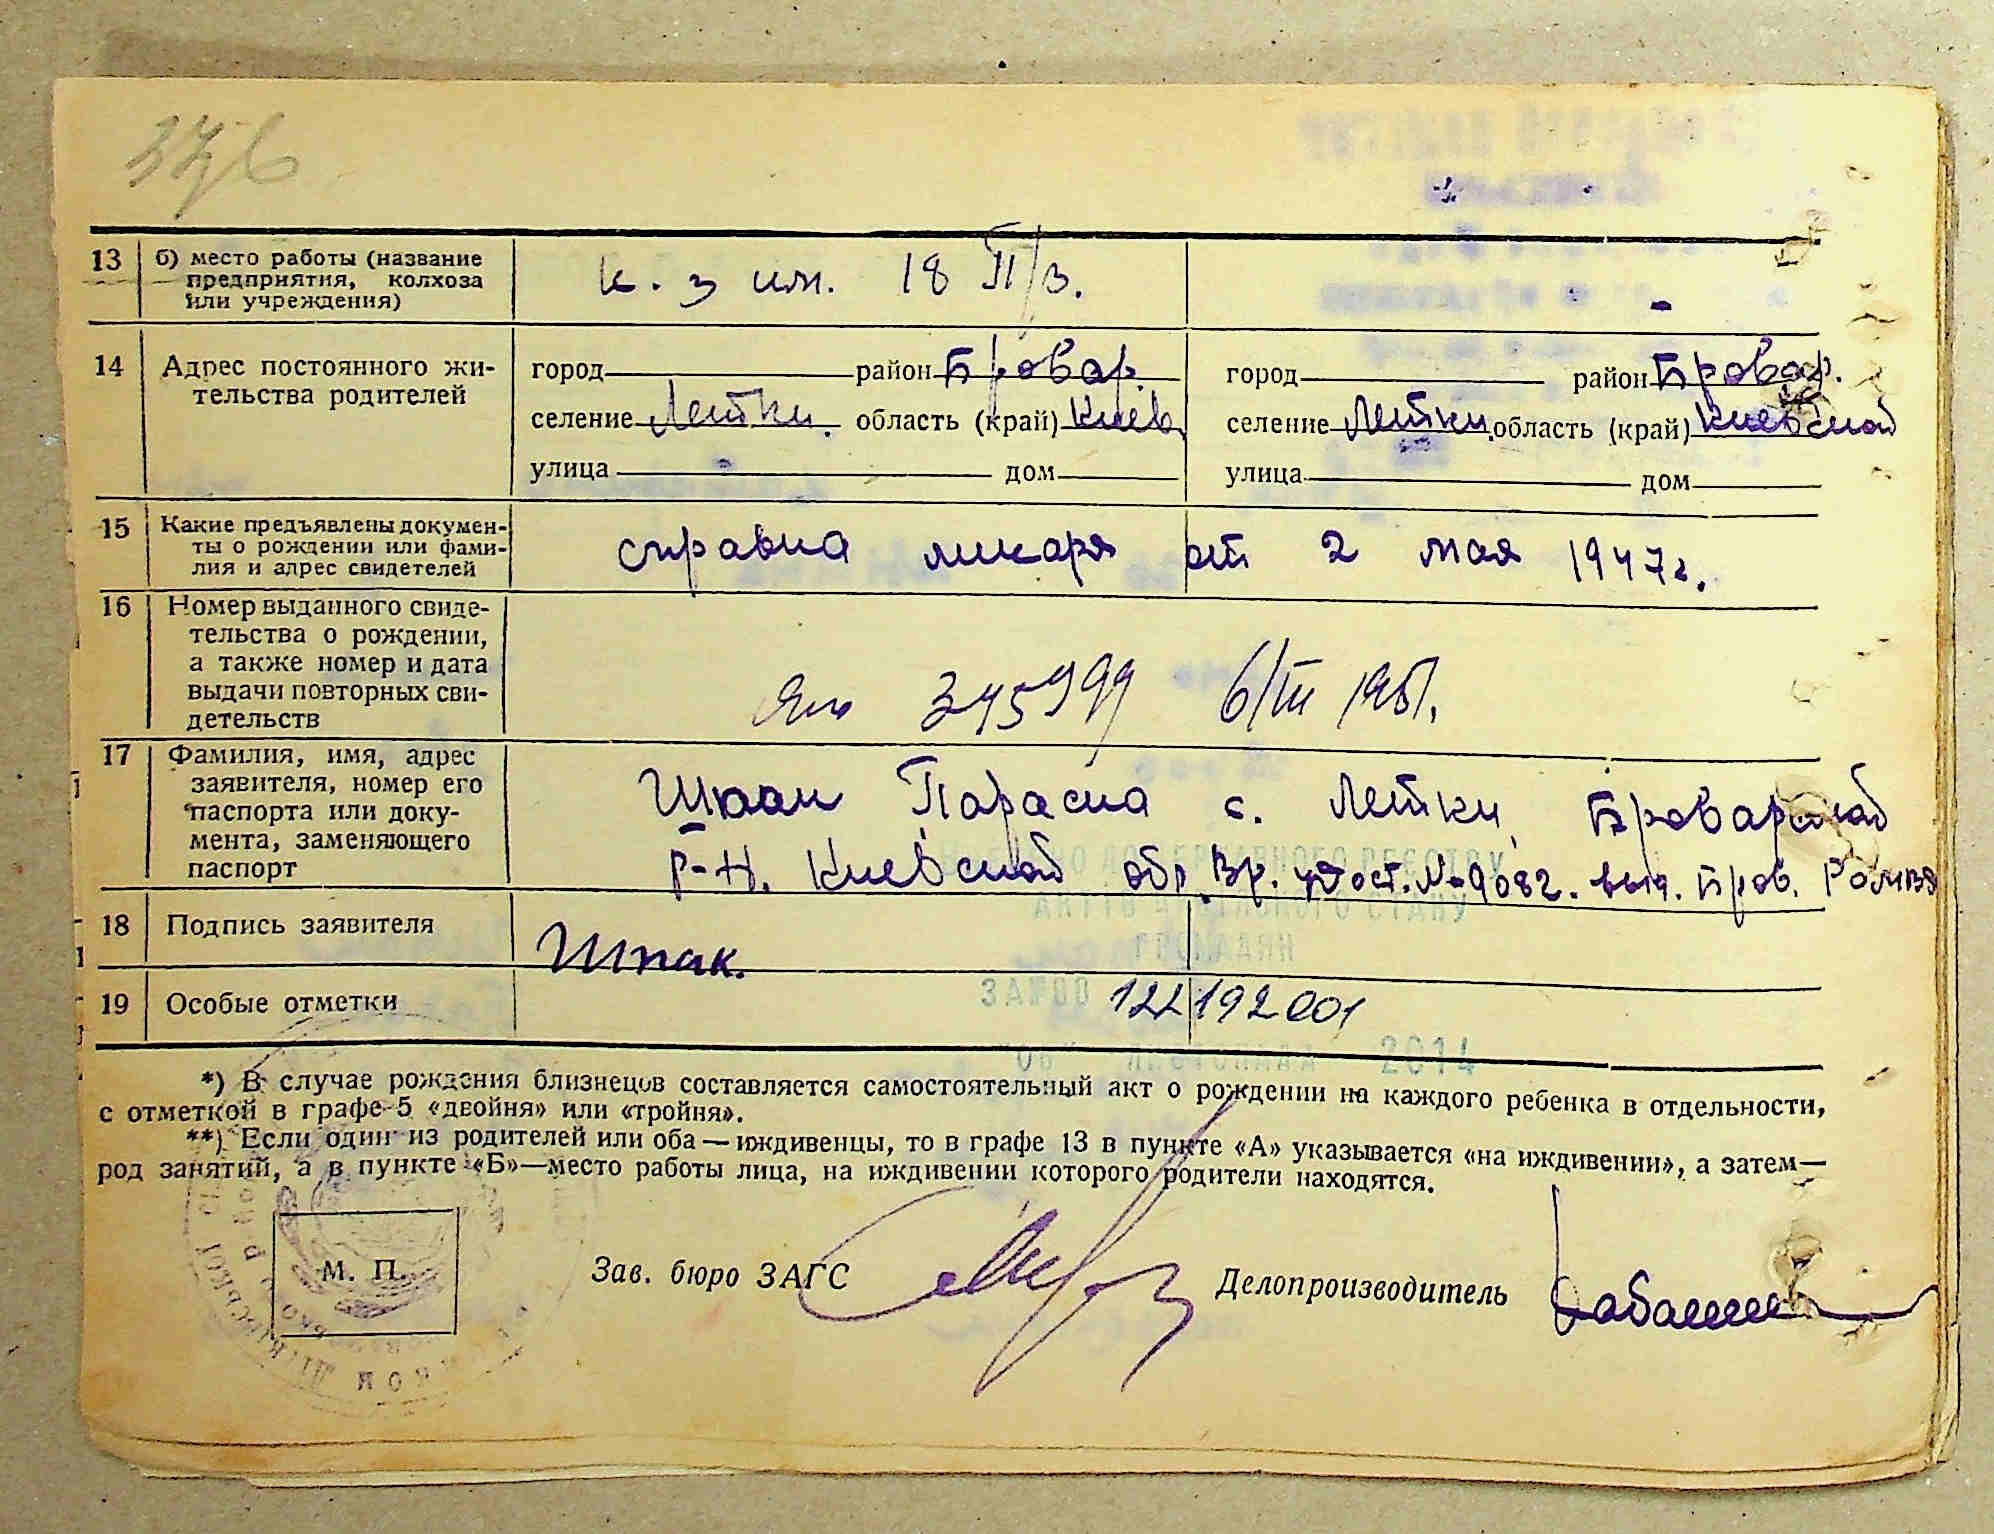 13 б) место работы (название
предприятия, колхоза
или учреждения)
к. з им. 18 П/з. -
14 Адрес постоянного жи-
тельства родителей
город район Бровар. город район Бровар.
селение Летки. область (край) Киев. селение Летки. область (край) Киевской
улица - дом улица дом
15 Какие предъявлены докумен-
ты о рождении или фами-
лия и адрес свидетелей
справка ликаря от 2 мая 1947 г.
16 Номер выданного свиде-
тельства о рождении,
а также номер и дата
выдачи повторных сви-
детельств
345999 6/III 1951.
17 Фамилия, имя, адрес
заявителя, номер его
паспорта или доку-
мента, заменяющего
паспорт
Шпак Параска с. Летки, Броварской
р-н. Киевской обл. Вр. удост. № 9082. выд. Бров.
18 Подпись заявителя Шпак.
19 Особые отметки 122192001
ДО ДЕРЖАВНОГО РЕЄСТРУ
АКТІВ ЦИВІЛЬНОГО СТАНУ
ГРОМАДЯН
"06" ЛИСТОПАДА 2014
*) В случае рождения близнецов составляется самостоятельный акт о рождении на каждого ребенка в отдельности,
с отметкой в графе 5 «двойня» или «тройня».
**) Если один из родителей или оба — иждивенцы, то в графе 13 в пункте «А» указывается «на иждивении», а затем—
род занятий, а в пункте «Б»—место работы лица, на иждивении которого родители находятся.
М. П.
Зав. бюро ЗАГС Делопроизводитель